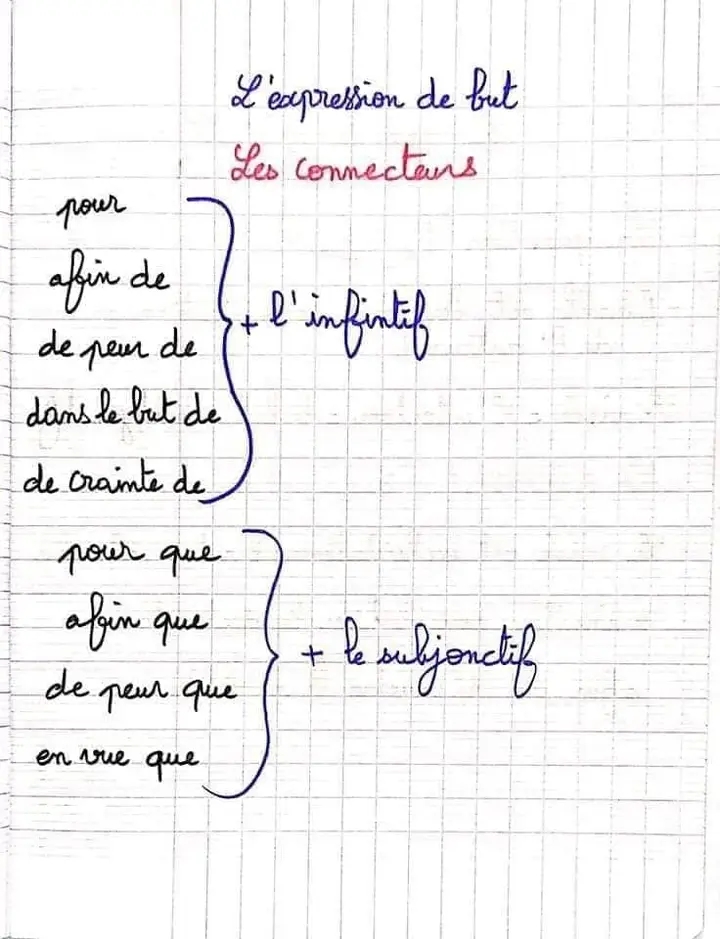 L'expression de but
Les connecteurs
pour
afin de
de peur de
dans le but de
de crainte de
+ l'infintif
pour que
afin que
de peur que
en vue que
+ le subjonctif